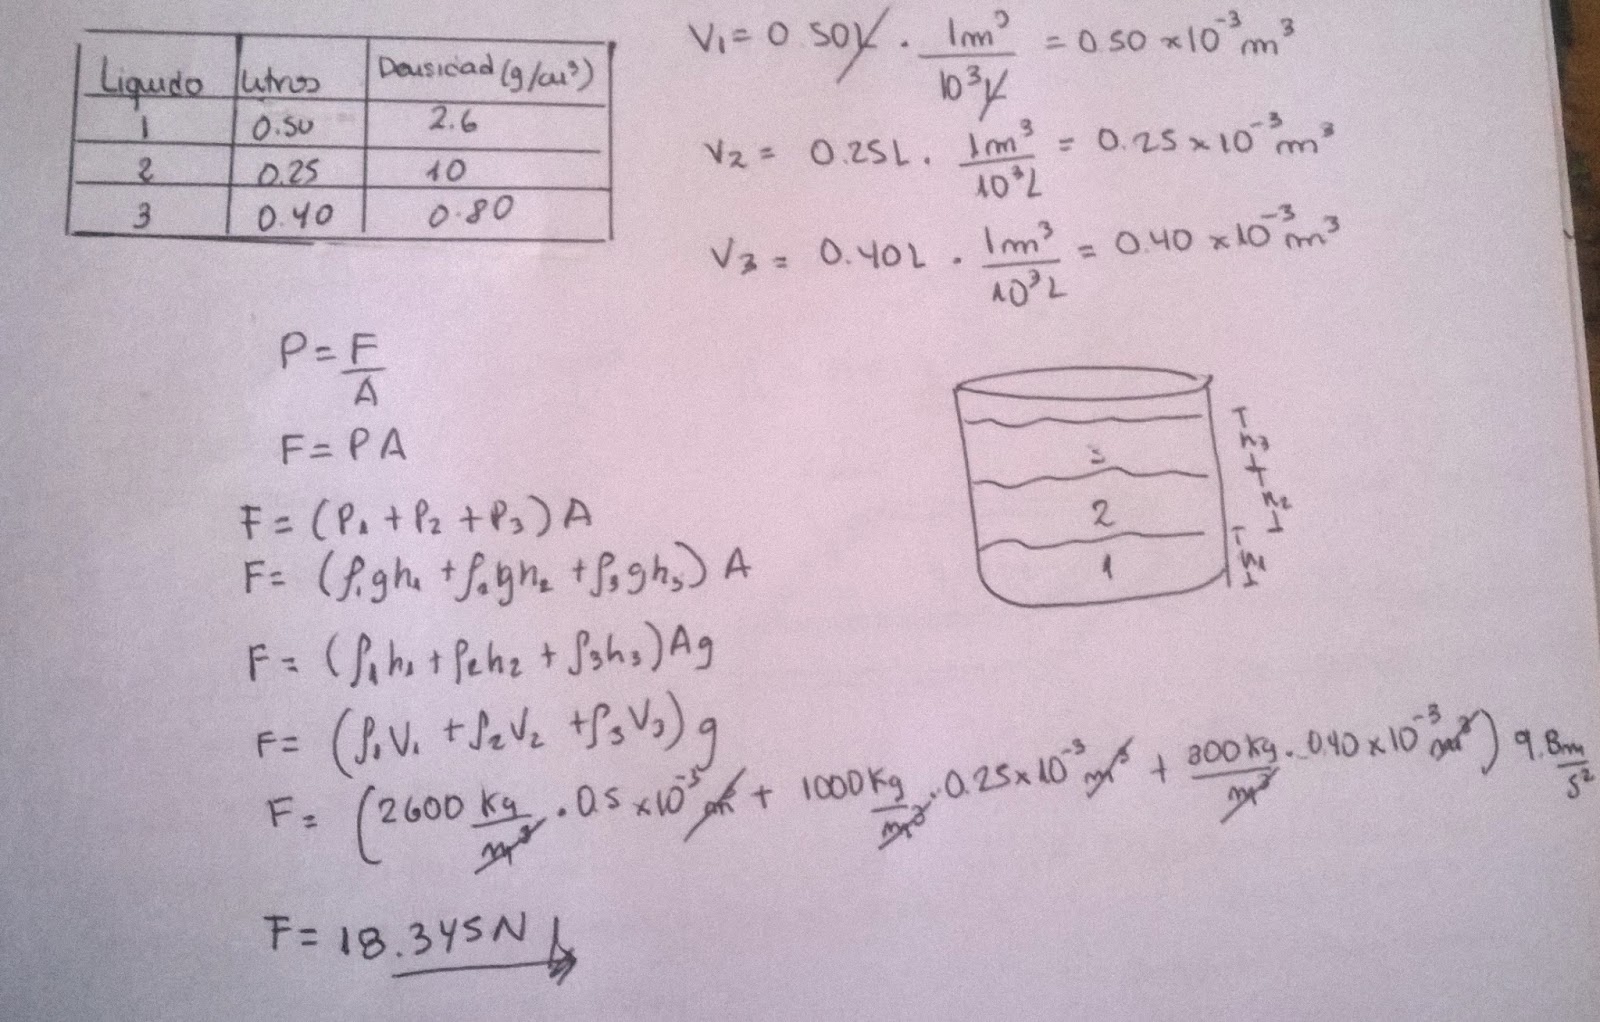 Liquido | Litros | Densidad (g/cm³)
1 | 0.50 | 2.6
2 | 0.25 | 10
3 | 0.40 | 0.80
V₁ = 0.50L · 1m³/10³L = 0.50 x10⁻³m³
V₂ = 0.25L · 1m³/10³L = 0.25 x10⁻³m³
V₃ = 0.40L · 1m³/10³L = 0.40 x10⁻³m³
P = F/A
F = PA
F = (P₁ + P₂ + P₃) A
F = (ρ₁gh₁ + ρ₂gh₂ + ρ₃gh₃) A
F = (ρ₁h₁ + ρ₂h₂ + ρ₃h₃) Ag
F = (ρ₁V₁ + ρ₂V₂ + ρ₃V₃) g
F = (2600 kg/m³ · 0.5 x10⁻³m³ + 1000 kg/m³ · 0.25 x10⁻³ m³ + 800 kg/m³ · 0.40 x10⁻³ m³) 9.8m/s²
F = 18.345N
3
2
1
h₃
h₂
h₁